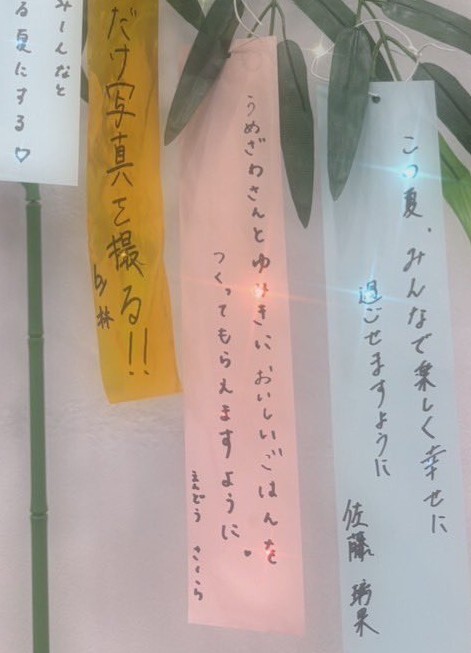 この夏、みんなで楽しく幸せに
過ごせますように
佐藤 璃果
うめざわさんとゆうきにおいしいごはんを
つくってもらえますように♥
えんどう さくら
だけ写真を撮る!!
by 林
みーんなと
る夏にする♡